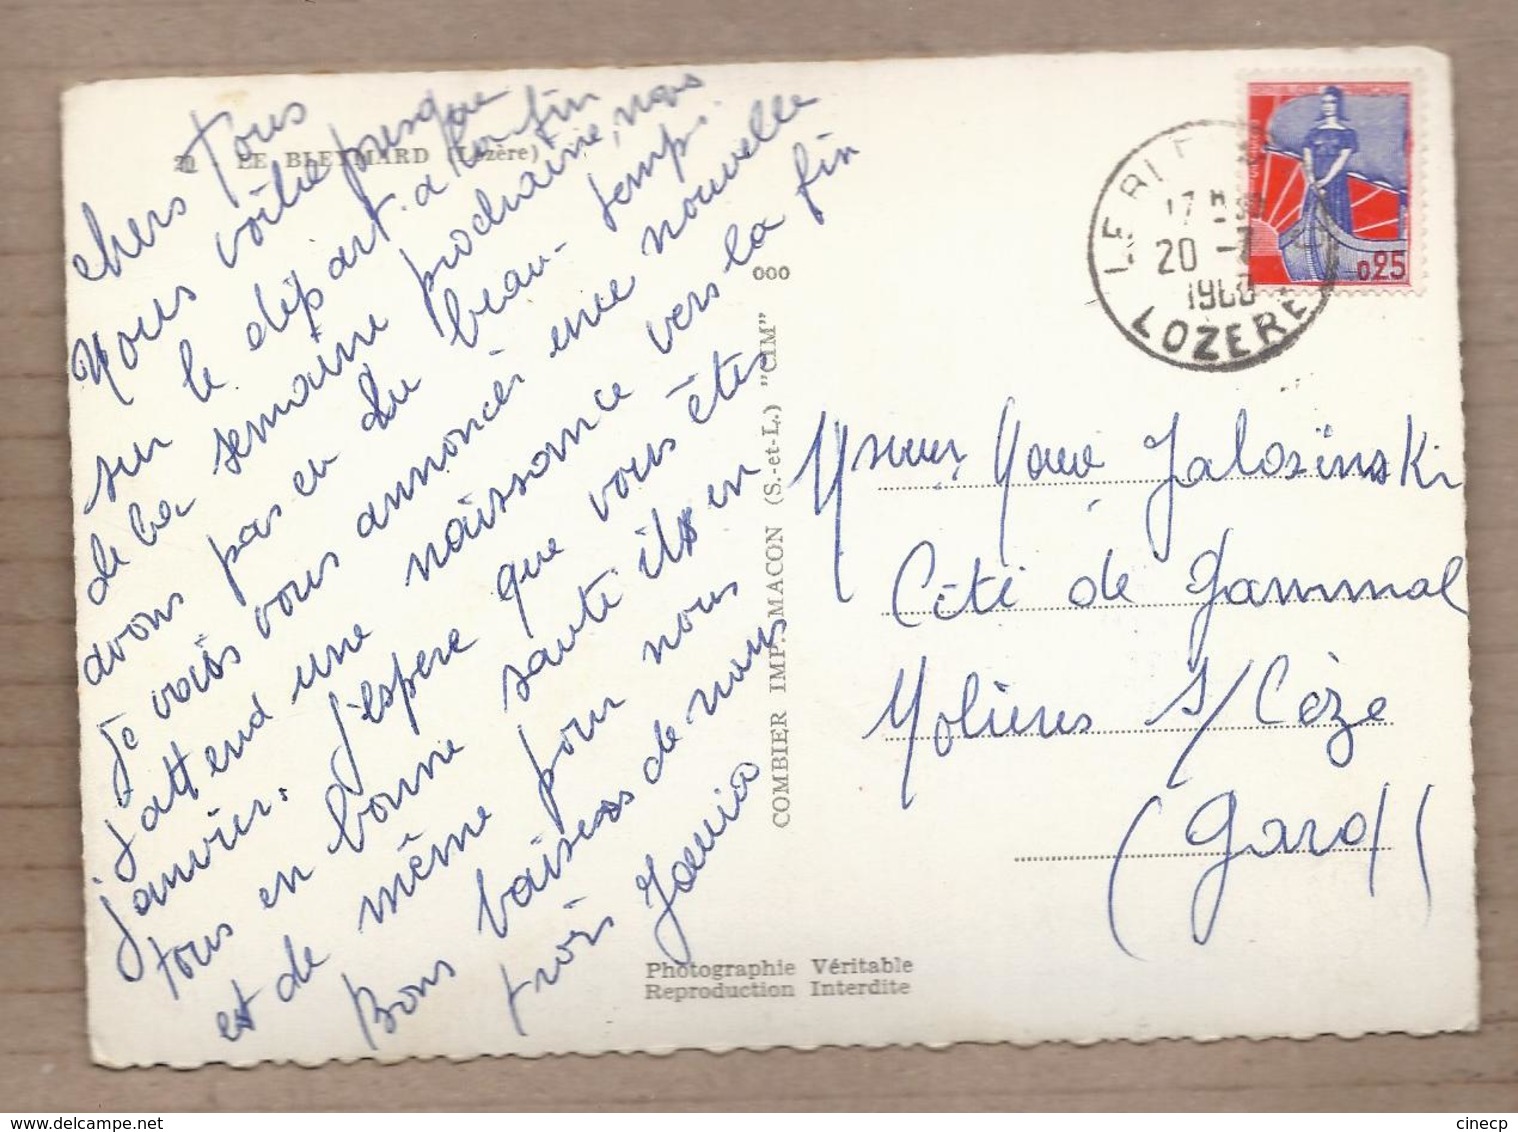 chers Tous
Nous voilà presque
sur le départ. à la fin
de la semaine prochaine, nous
avons pas eu du beau-temps.
Je vais vous annoncés une nouvelle
j'attend une naissance vers la fin
janvier. J'espère que vous êtes
tous en bonne santé il en
est de même pour nous
Bons baisers de nous
trois Jania
22 LE BLEYMARD (Lozère)
COMBIER IMP. MACON (S.-et-L.) "CIM"
000
Photographie Véritable
Reproduction Interdite
LE BL
17 H
20 -7
1960
LOZERE
0,25
Jalosinski
Cité de Gammal
Molières s/ Cèze
(Gard)
cinecp